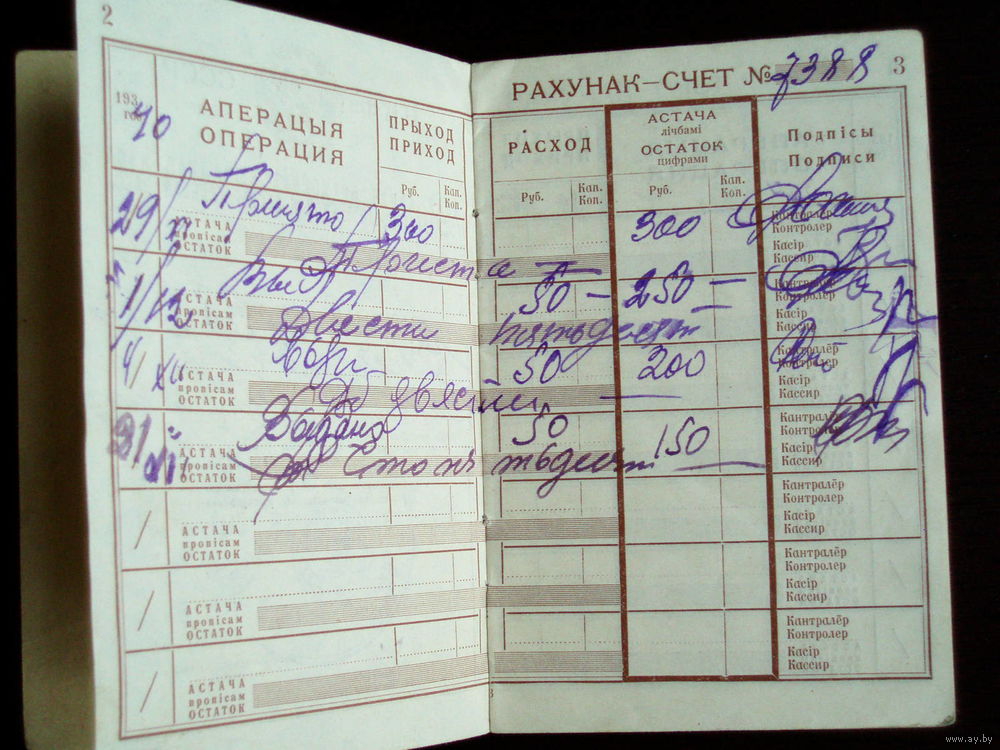 2
193
40
АПЕРАЦЫЯ
ОПЕРАЦИЯ
ПРЫХОД
ПРИХОД
Руб.
Кап.
Коп.
РАХУНАК–СЧЕТ № 7388
3
РАСХОД
Руб.
Кап.
Коп.
АСТАЧА
лічбамі
ОСТАТОК
цифрами
Руб.
Кап.
Коп.
Подпісы
Подписи
29/ Принято 300 300
АСТАЧА
пропісам
ОСТАТОК
Триста —
Кантралёр
Контролер
Касір
Кассир
1/XII 50 – 250 –
АСТАЧА
пропісам
ОСТАТОК
Двести пятьдесят
Кантралёр
Контролер
Касір
Кассир
4/XII 50 200
АСТАЧА
пропісам
ОСТАТОК
двести —
Кантралёр
Контролер
Касір
Кассир
31 50 150
АСТАЧА
пропісам
ОСТАТОК
Сто пятьдесят —
Кантралёр
Контролер
Касір
Кассир
/
АСТАЧА
пропісам
ОСТАТОК
Кантралёр
Контролер
Касір
Кассир
/
АСТАЧА
пропісам
ОСТАТОК
Кантралёр
Контролер
Касір
Кассир
/
АСТАЧА
пропісам
ОСТАТОК
Кантралёр
Контролер
Касір
Кассир
www.ay.by